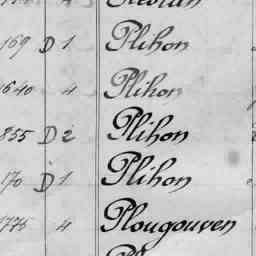 169 D 1 Plihon
1640 4 Plihon
855 D 2 Plihon
170 D 1 Plihon
1775 4 Plougouven